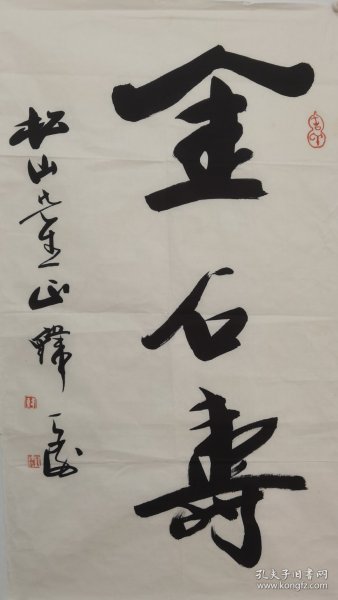 金石寿
松山先生正
孔夫子旧书网
www.kongfz.com